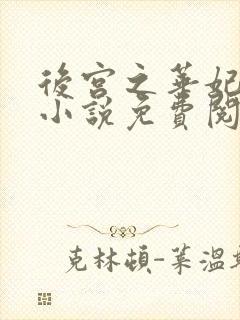 後宮之華妃
小說免費閱
克林頓-萊溫斯